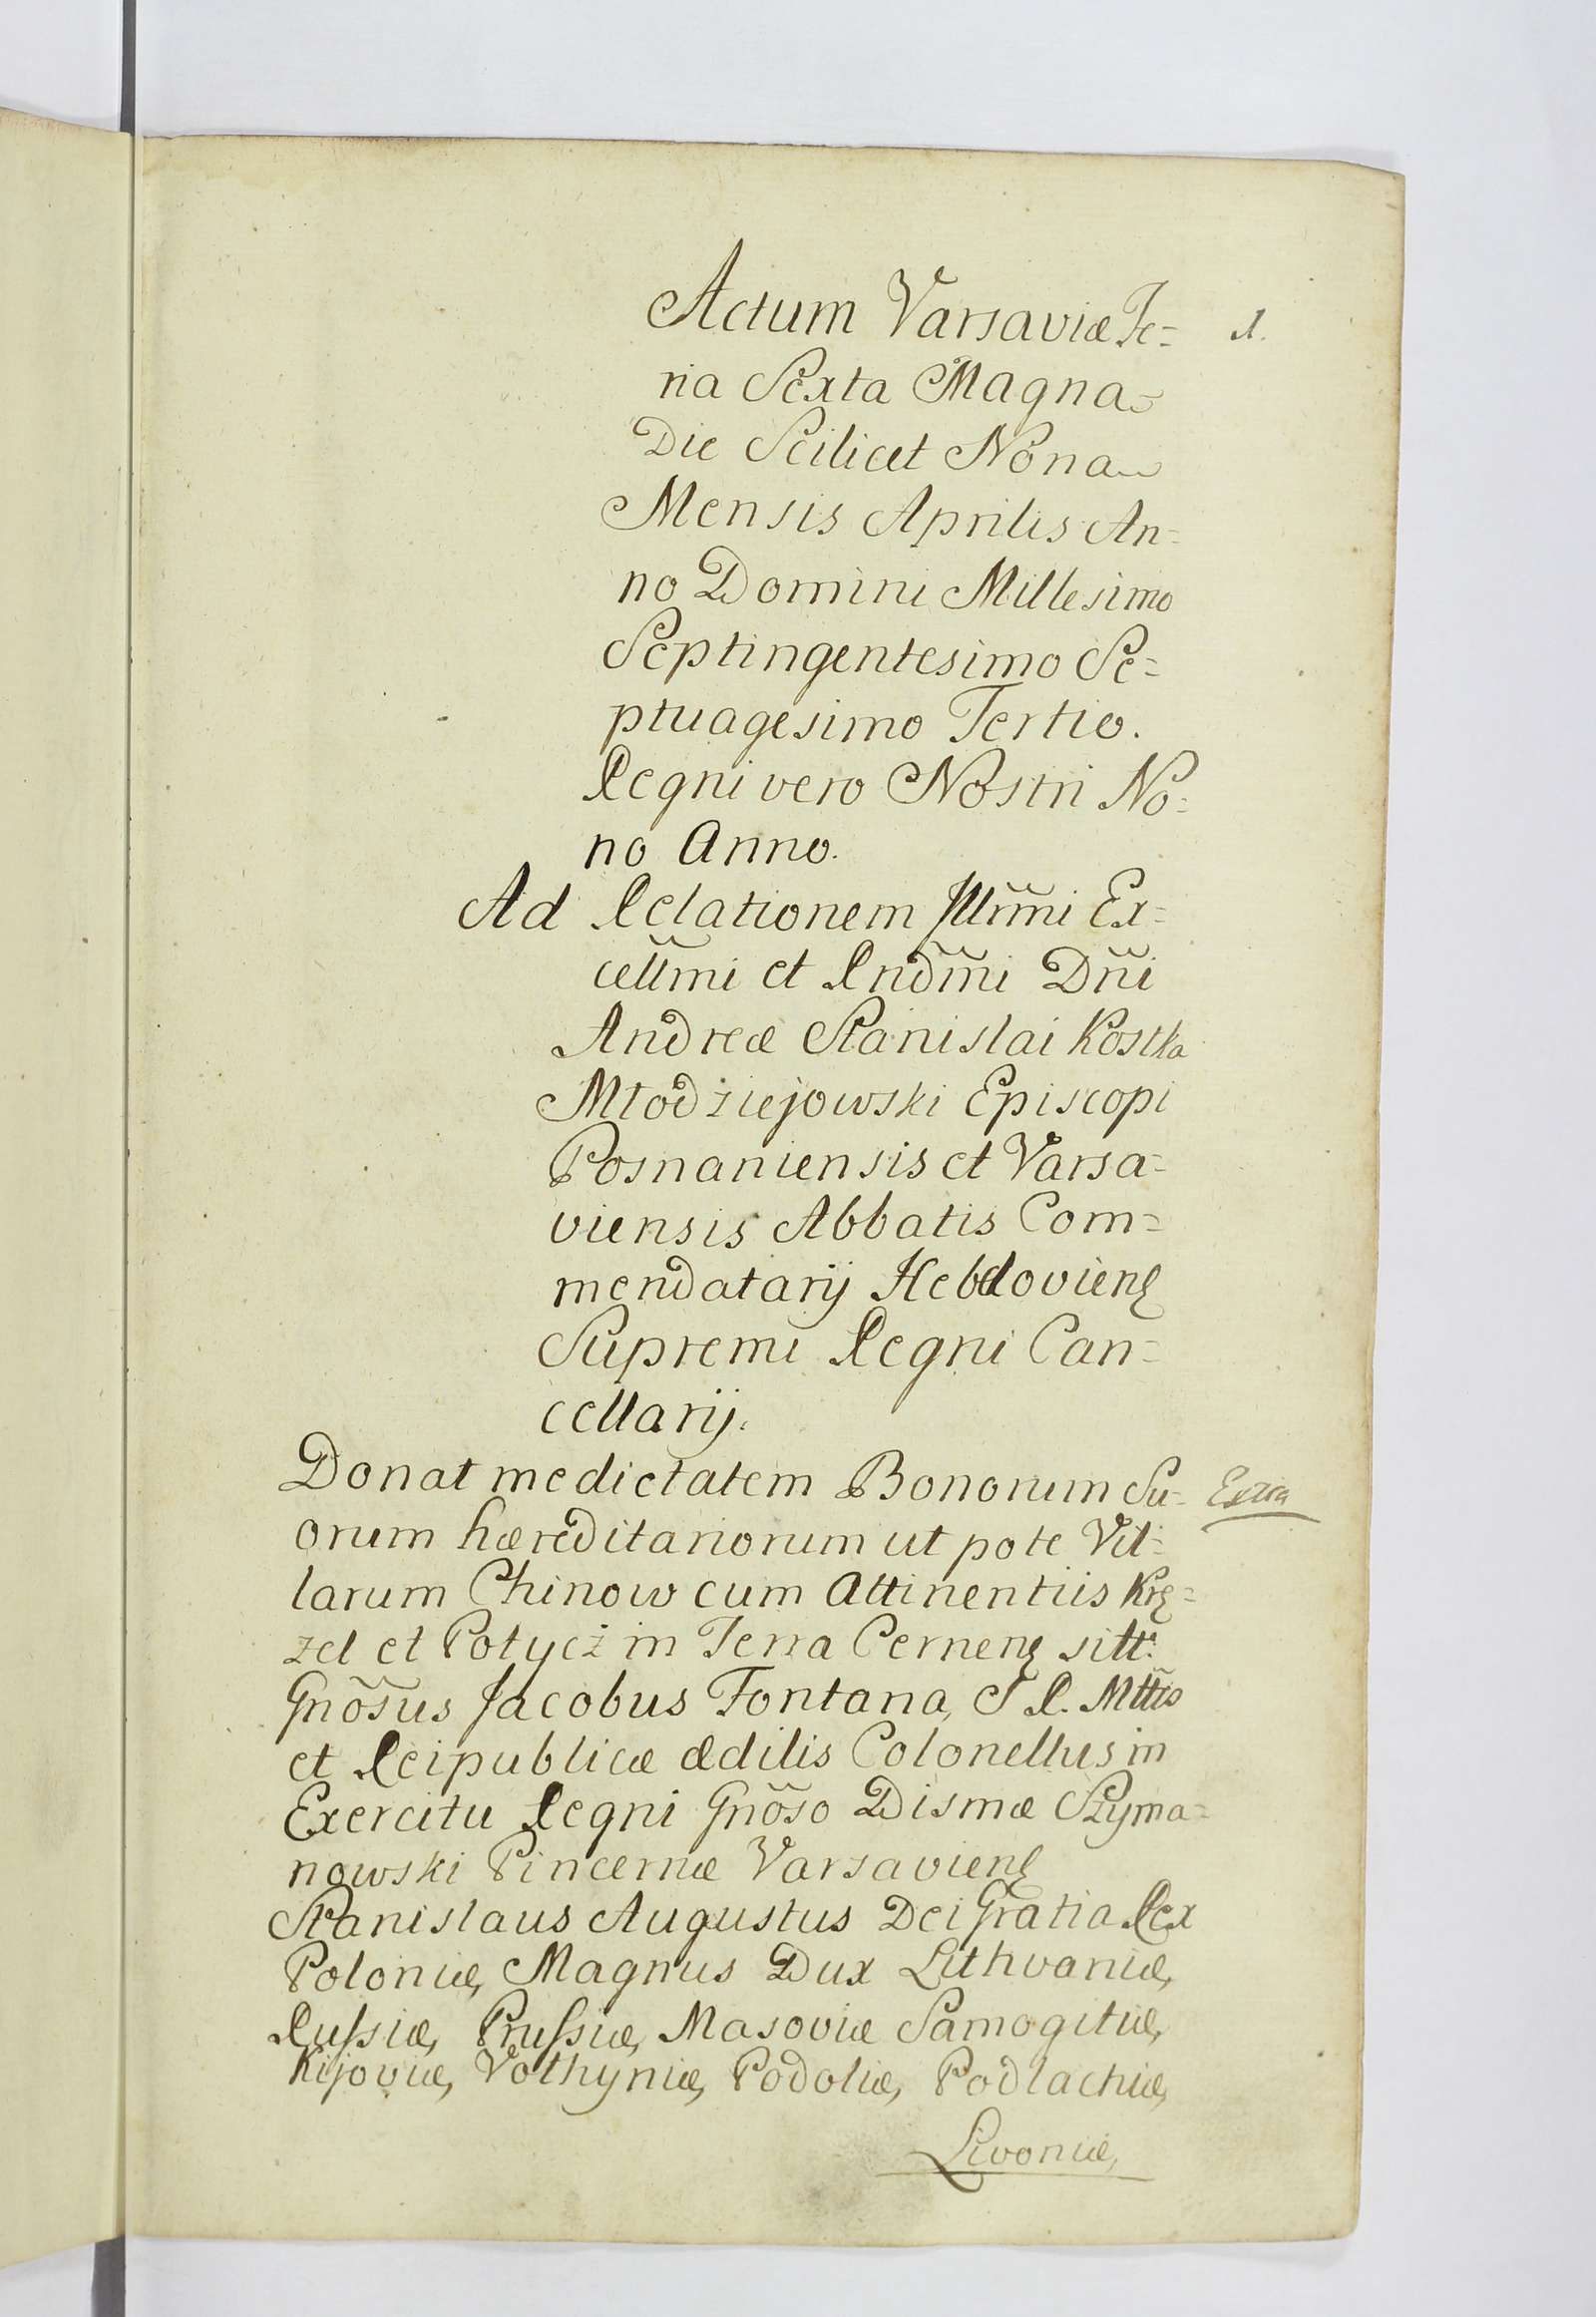 Actum Varsaviæ Fe= 1.
ria Sexta Magna
Die Scilicet Nona
Mensis Aprilis An=
no Domini Millesimo
Septingentesimo Se=
ptuagesimo Tertio.
Regni vero Nostri No=
no Anno.
Ad Relationem Illm̃mi Ex=
cellm̃i et Rñdm̃i Dñi
Andreæ Stanislai Kostka
Młodziejowski Episcopi
Posnaniensis et Varsa=
viensis Abbatis Com=
mendatarij Hebdovienẽ
Supremi Regni Can=
cellarij.
Donat medietatem Bonorum Su= Extra
orum hæreditariorum ut pote Vil=
larum Chinow cum Attinentiis Krę=
zel et Potycż in Terra Cernenẽ sitt:
Gnõsus Jacobus Fontana, S R. Mttis
et Reipublicæ Ædilis Colonellus in
Exercitu Regni Gnõso Dismæ Szyma=
nowski Pincernæ Varsavienẽ
Stanislaus Augustus Dei Gratia Rex
Poloniæ, Magnus Dux Lithvaniæ,
Rufsiæ, Prufsiæ, Masoviæ Samogitiæ,
Kijoviæ, Volhyniæ, Podoliæ, Podlachiæ,
Livoniæ,